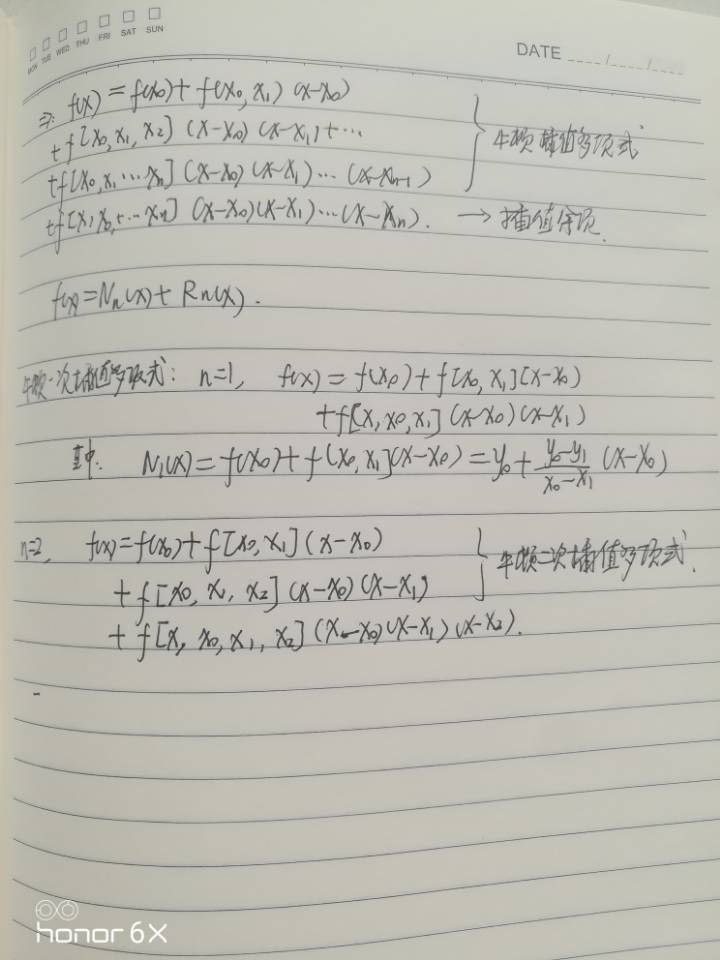 MON TUE WED THU FRI SAT SUN
DATE ____/____/____
⇒: f(x) = f(x0) + f(x0, x1) (x-x0)
+ f[x0, x1, x2] (x-x0) (x-x1) + ...
牛顿插值多项式
+ f[x0, x1 ... xn] (x-x0) (x-x1) ... (x-xn-1)
+ f[x, x0, ... xn] (x-x0)(x-x1) ... (x-xn). → 插值余项.
f(x) = Nn(x) + Rn(x).
牛顿一次插值多项式: n=1, f(x) = f(x0) + f[x0, x1](x-x0)
+ f[x, x0, x1] (x-x0) (x-x1)
其中: N1(x) = f(x0) + f(x0, x1](x-x0) = y0 + (y0-y1)/(x0-x1) (x-x0)
n=2, f(x) = f(x0) + f[x0, x1] (x-x0)
牛顿二次插值多项式.
+ f[x0, x1, x2] (x-x0) (x-x1)
+ f[x, x0, x1, x2] (x-x0)(x-x1)(x-x2).
-
honor 6X